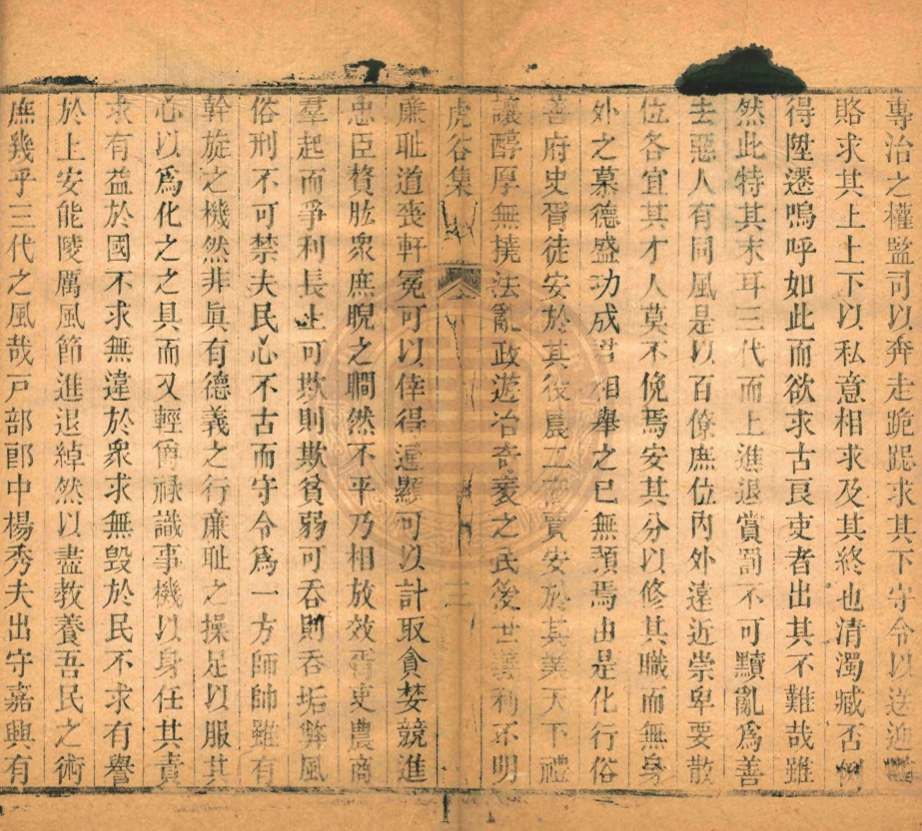 專治之權監司以奔走跪跽求其下守令以送迎
賂求其上上下以私意相求及其終也清濁臧否
得陞遷嗚呼如此而欲求古良吏者出其不難哉雖
然此特其末耳三代而上進退賞罰不可黷亂爲善
去惡人有同風是以百僚庶位內外遠近崇卑要散
位各宜其才人莫不俛焉安其分以修其職而無身
外之慕德盛功成君相舉之已無預焉由是化行俗
善府史胥徒安於其役農工商賈安於其業天下禮
讓醇厚無撓法亂政遊冶奇衺之民後世義利不明
虎谷集 二
廉耻道喪軒冕可以倖得通顯可以計取貪婪競進
忠臣贅肬衆庶睨之瞯然不平乃相放效胥吏農商
羣起而爭利長上可欺則欺貧弱可吞則吞垢弊風
俗刑不可禁夫民心不古而守令爲一方師帥雖有
幹旋之機然非眞有德義之行廉耻之操足以服其
心以爲化之之具而又輕爵祿識事機以身任其責
求有益於國不求無違於衆求無毀於民不求有譽
於上安能陵厲風節進退綽然以盡教養吾民之術
庶幾乎三代之風哉戸部郎中楊秀夫出守嘉興有